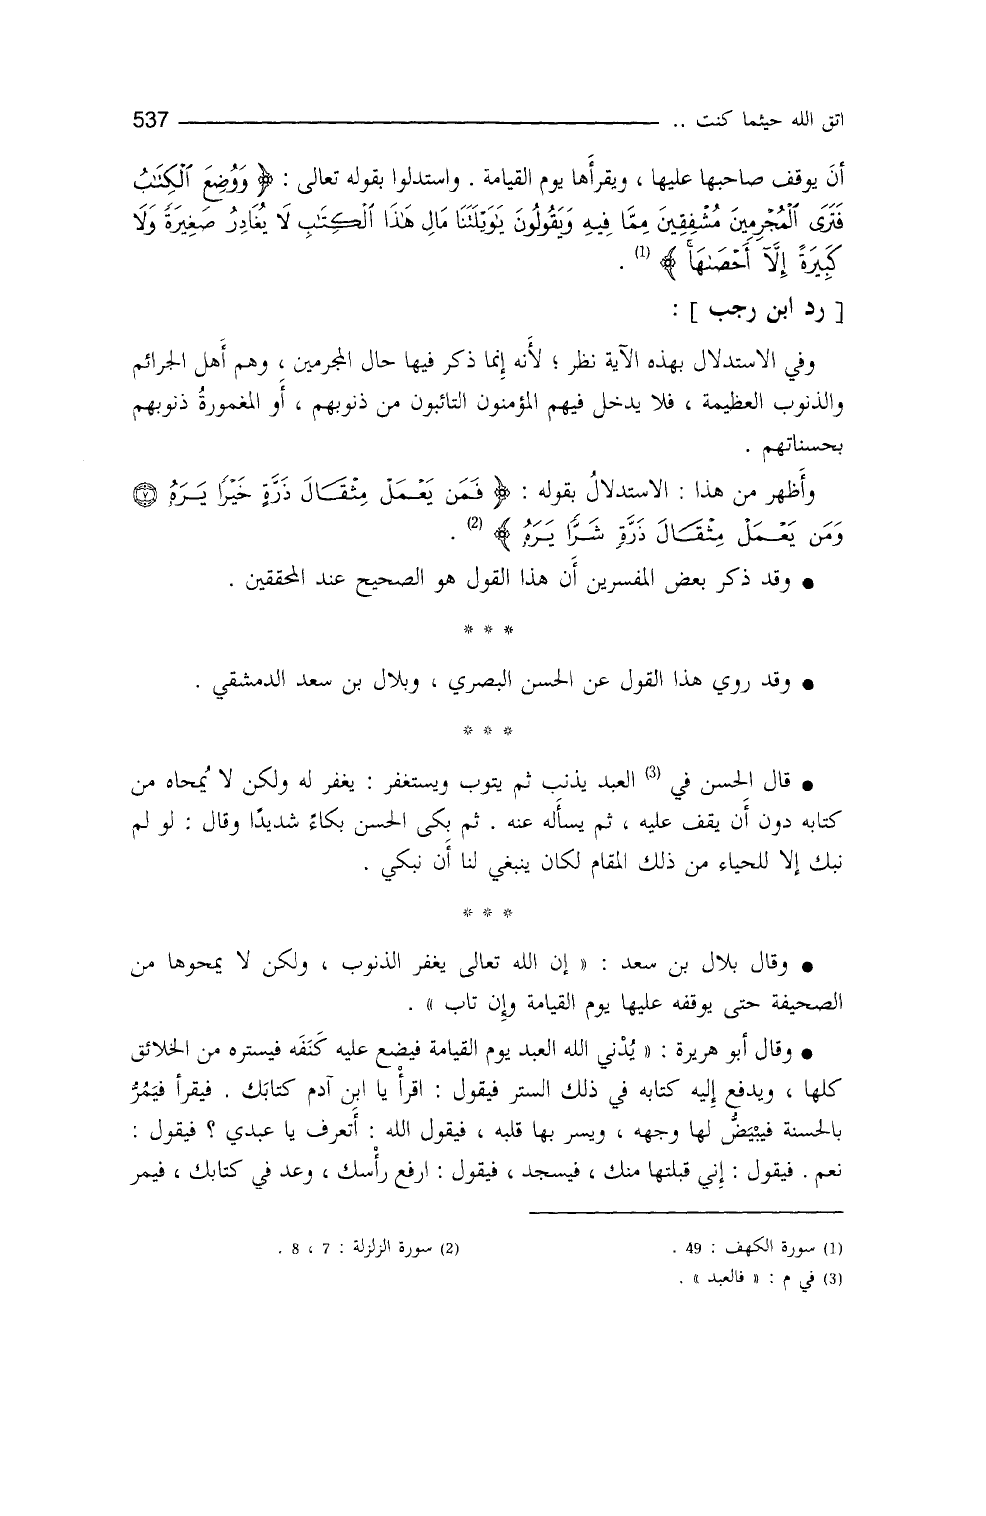 اتق الله حيثما كنت .. 537
أنَ يوقف صاحبها عليها ، ويقرأَها يوم القيامة . واستدلوا بقوله تعالى : ﴿ وَوُضِعَ ٱلْكِتَٰبُ
فَتَرَى ٱلْمُجْرِمِينَ مُشْفِقِينَ مِمَّا فِيهِ وَيَقُولُونَ يَٰوَيْلَتَنَا مَالِ هَٰذَا ٱلْكِتَٰبِ لَا يُغَادِرُ صَغِيرَةً وَلَا
كَبِيرَةً إِلَّآ أَحْصَىٰهَاۚ ﴾ (1) .
[ رد ابن رجب ] :
وفي الاستدلال بهذه الآية نظر ؛ لأَنه إِنما ذكر فيها حال المجرمين ، وهم أَهل الجرائم
والذنوب العظيمة ، فلا يدخل فيهم المؤمنون التائبون من ذنوبهم ، أَو المغمورةُ ذنوبهم
بحسناتهم .
وأَظهر من هذا : الاستدلالُ بقوله : ﴿ فَمَن يَعْمَلْ مِثْقَالَ ذَرَّةٍ خَيْرًا يَرَهُۥ ٧
وَمَن يَعْمَلْ مِثْقَالَ ذَرَّةٍ شَرًّا يَرَهُۥ ﴾ (2) .
● وقد ذكر بعض المفسرين أَن هذا القول هو الصحيح عند المحققين .
* * *
● وقد روي هذا القول عن الحسن البصري ، وبلال بن سعد الدمشقي .
* * *
● قال الحسن في (3) العبد يذنب ثم يتوب ويستغفر : يغفر له ولكن لا يُمحاه من
كتابه دون أَن يقف عليه ، ثم يسأَله عنه . ثم بكى الحسن بكاءً شديدًا وقال : لو لم
نبك إِلا للحياء من ذلك المقام لكان ينبغي لنا أَن نبكي .
* * *
● وقال بلال بن سعد : « إِن الله تعالى يغفر الذنوب ، ولكن لا يمحوها من
الصحيفة حتى يوقفه عليها يوم القيامة وإِن تاب » .
● وقال أبو هريرة : « يُدْني الله العبد يوم القيامة فيضع عليه كَنَفَه فيستره من الخلائق
كلها ، ويدفع إِليه كتابه في ذلك الستر فيقول : اقرأْ يا ابن آدم كتابَك . فيقرأ فيَمُرُّ
بالحسنة فيبْيَضُّ لها وجهه ، ويسر بها قلبه ، فيقول الله : أَتعرف يا عبدي ؟ فيقول :
نعم . فيقول : إِني قبلتها منك ، فيسجد ، فيقول : ارفع رأْسك ، وعد في كتابك ، فيمر
(1) سورة الكهف : 49 . (2) سورة الزلزلة : 7 ، 8 .
(3) في م : « فالعبد » .